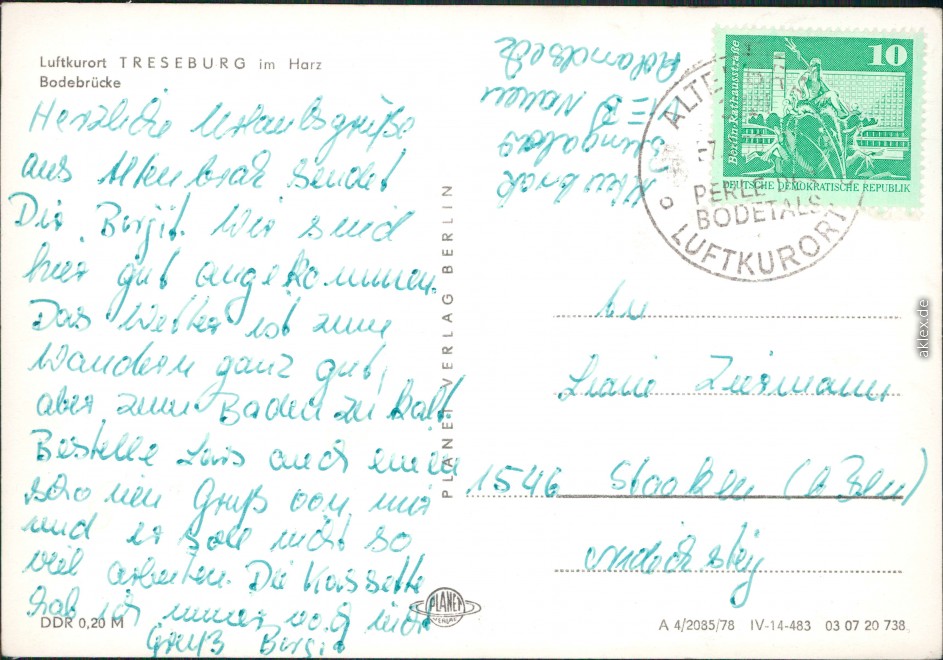 Luftkurort TRESEBURG im Harz
Bodebrücke
Herzliche Urlaubsgrüße
aus Altenbrak sendet
Dir Birgit. Wir sind
hier gut angekommen.
Das Wetter ist zum
Wandern ganz gut,
aber zum Baden zu kalt.
Bestelle auch einen
schönen Gruß von mir
und er soll nicht so
viel arbeiten. Die Kassette
hab ich immer noch nicht
Gruß Birgit
DDR 0,20 M
PLANET VERLAG BERLIN
PLANET
VERLAG
Altenbrak
Bungalow
Nauen
10
Berlin-Rathausstraße
DEUTSCHE DEMOKRATISCHE REPUBLIK
PERLE DES
BODETALS
LUFTKURORT
An
Ziermann
1546 Staaken (b Bln)
A 4/2085/78 IV-14-483 03 07 20 738
aklex.de